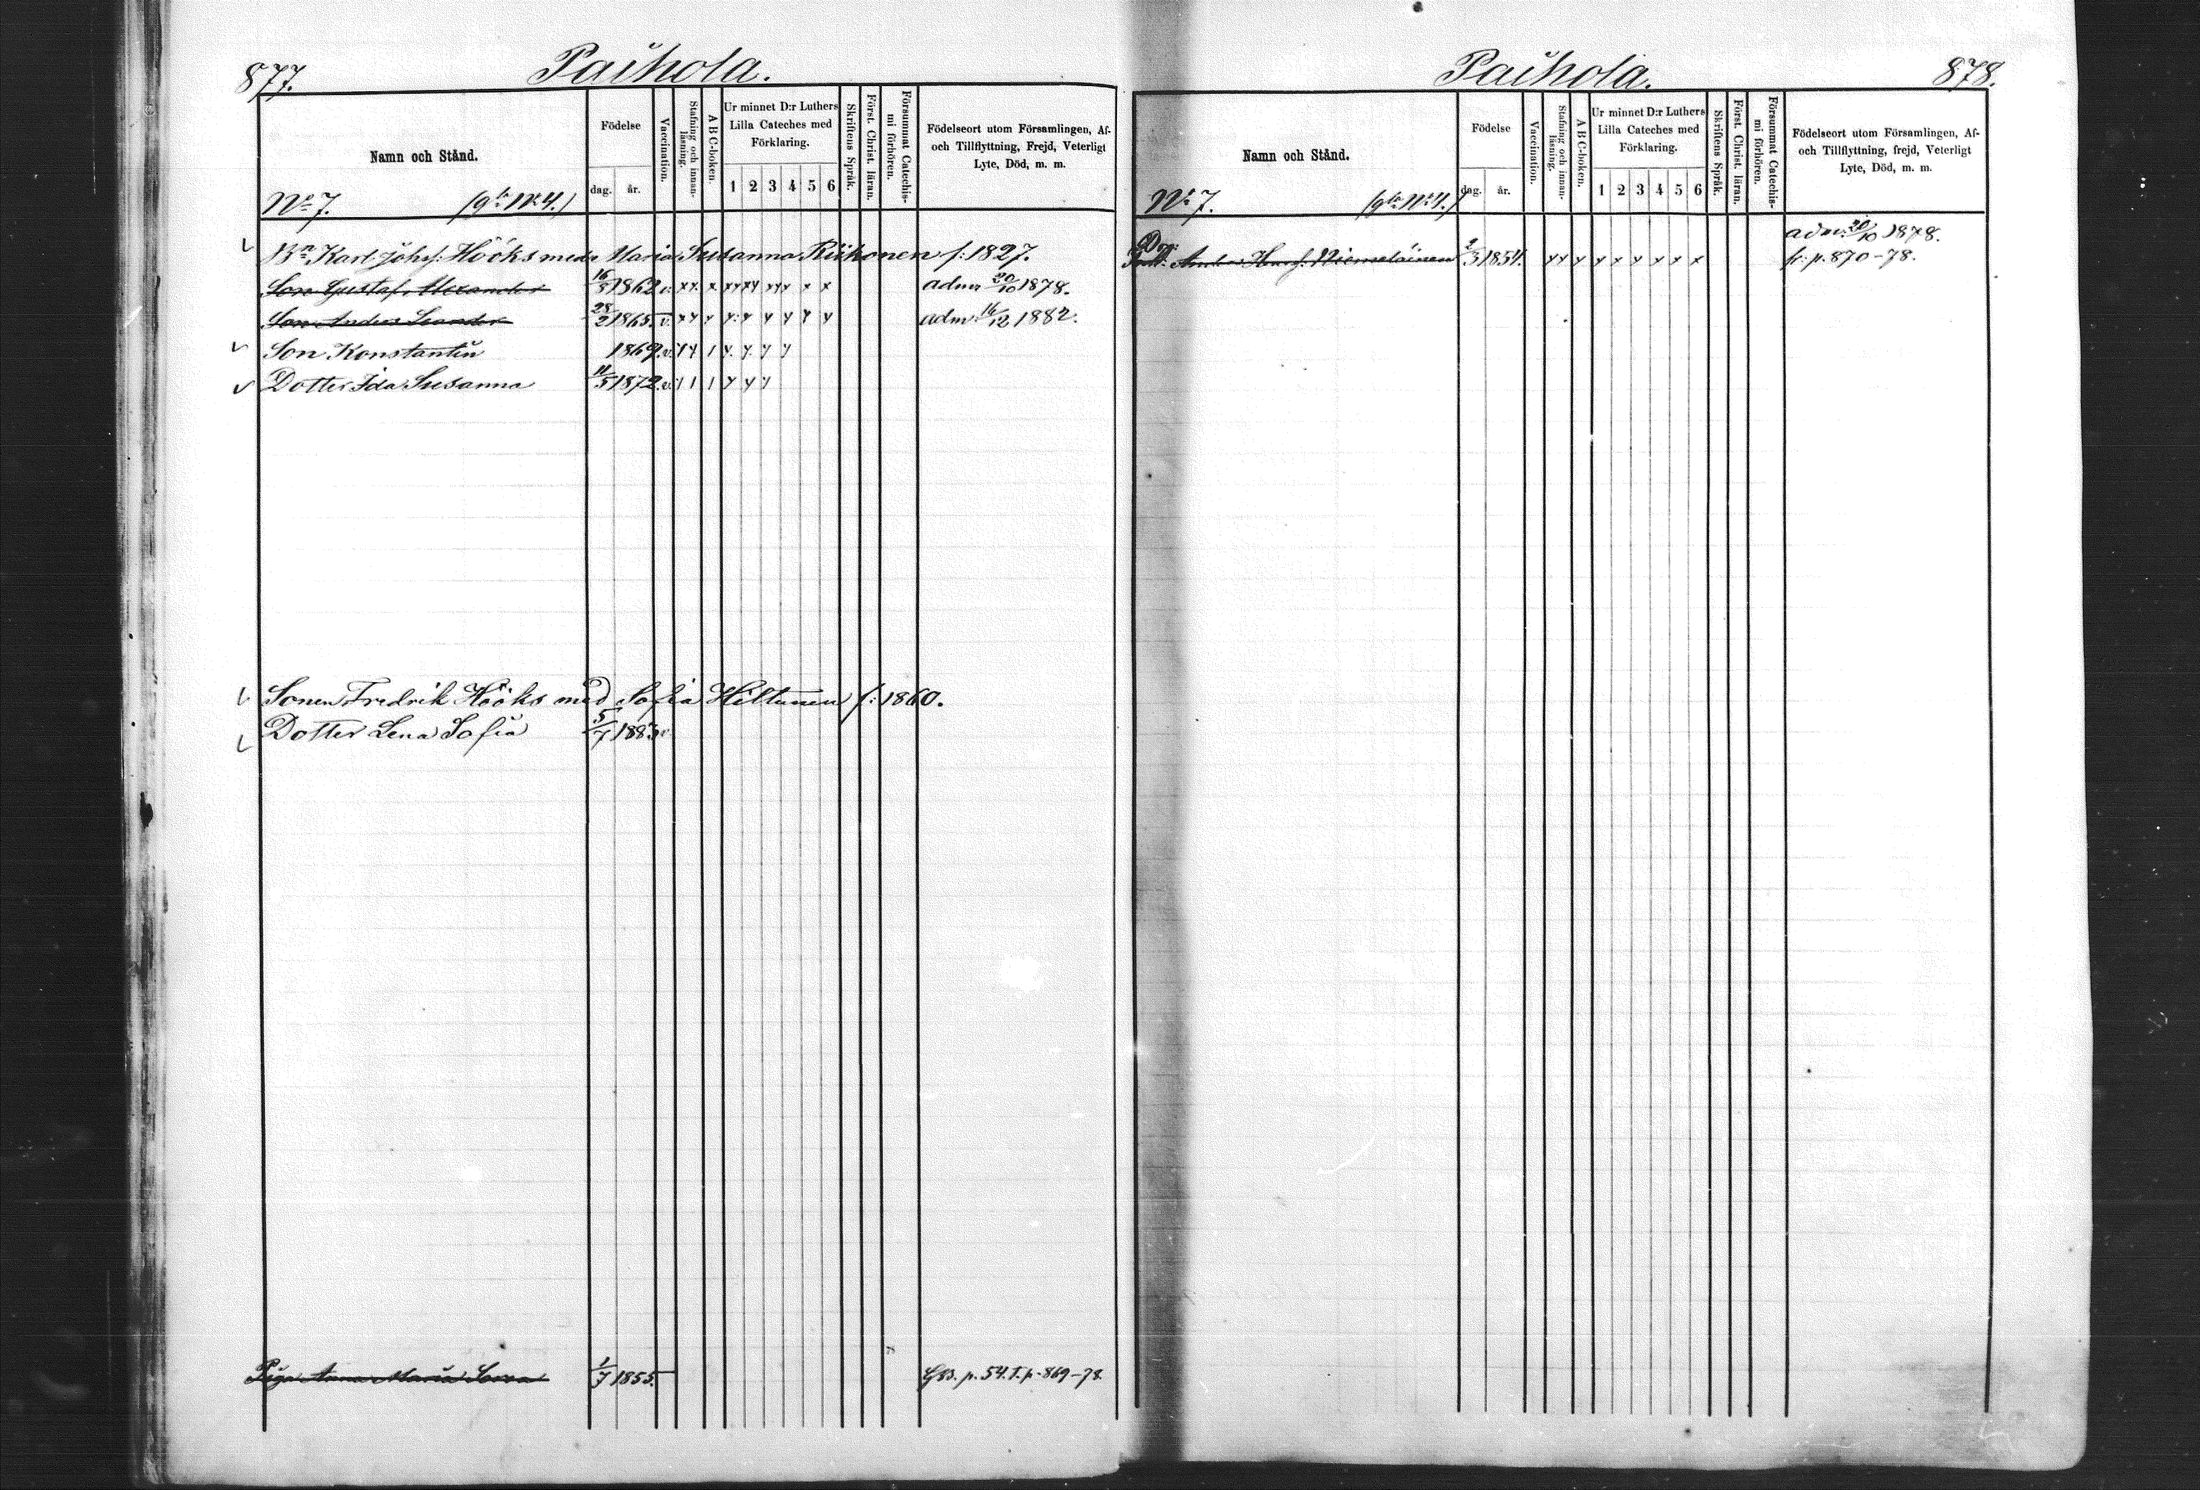 877. Paihola.
Namn och Stånd.
Födelse
dag. år.
Vaccination.
Stafning och innanläsning.
A B C-boken.
Ur minnet D:r Luthers Lilla Cateches med Förklaring.
1 2 3 4 5 6
Skriftens Språk.
Först. Christ. läran.
Försummat Catechismi förhören.
Födelseort utom Församlingen, Af- och Tillflyttning, Frejd, Veterligt Lyte, Död, m. m.
No 7. (gla No 4.)
Bn Karl Johsf: Hööks med Maria Susanna Riikonen f: 1827.
Son Gustaf Alexander 16/5 1862 v. adm 20/10 1878.
Son Anders Leander 28/2 1865. v. adm. 16/12 1882.
Son Konstantin 1869. v.
Dotter Ida Susanna 11/5 1872. v.
Sonen Fredrik Hööks med Sofia Hiltunen f: 1860.
Dotter Lena Sofia 5/7 1883 v.
Piga Anna Maria Sorsa 1/7 1855. p. 54. T. p. 869-78.
Paihola. 878.
Namn och Stånd.
Födelse
dag. år.
Vaccination.
Stafning och innanläsning.
A B C-boken.
Ur minnet D:r Luthers Lilla Cateches med Förklaring.
1 2 3 4 5 6
Skriftens Språk.
Först. Christ. läran.
Försummat Catechismi förhören.
Födelseort utom Församlingen, Af- och Tillflyttning, frejd, Veterligt Lyte, Död, m. m.
No 7. (gla No 4.)
adm. 20/10 1878.
Niemeläinen 2/3 1854. fr. p. 870-78.